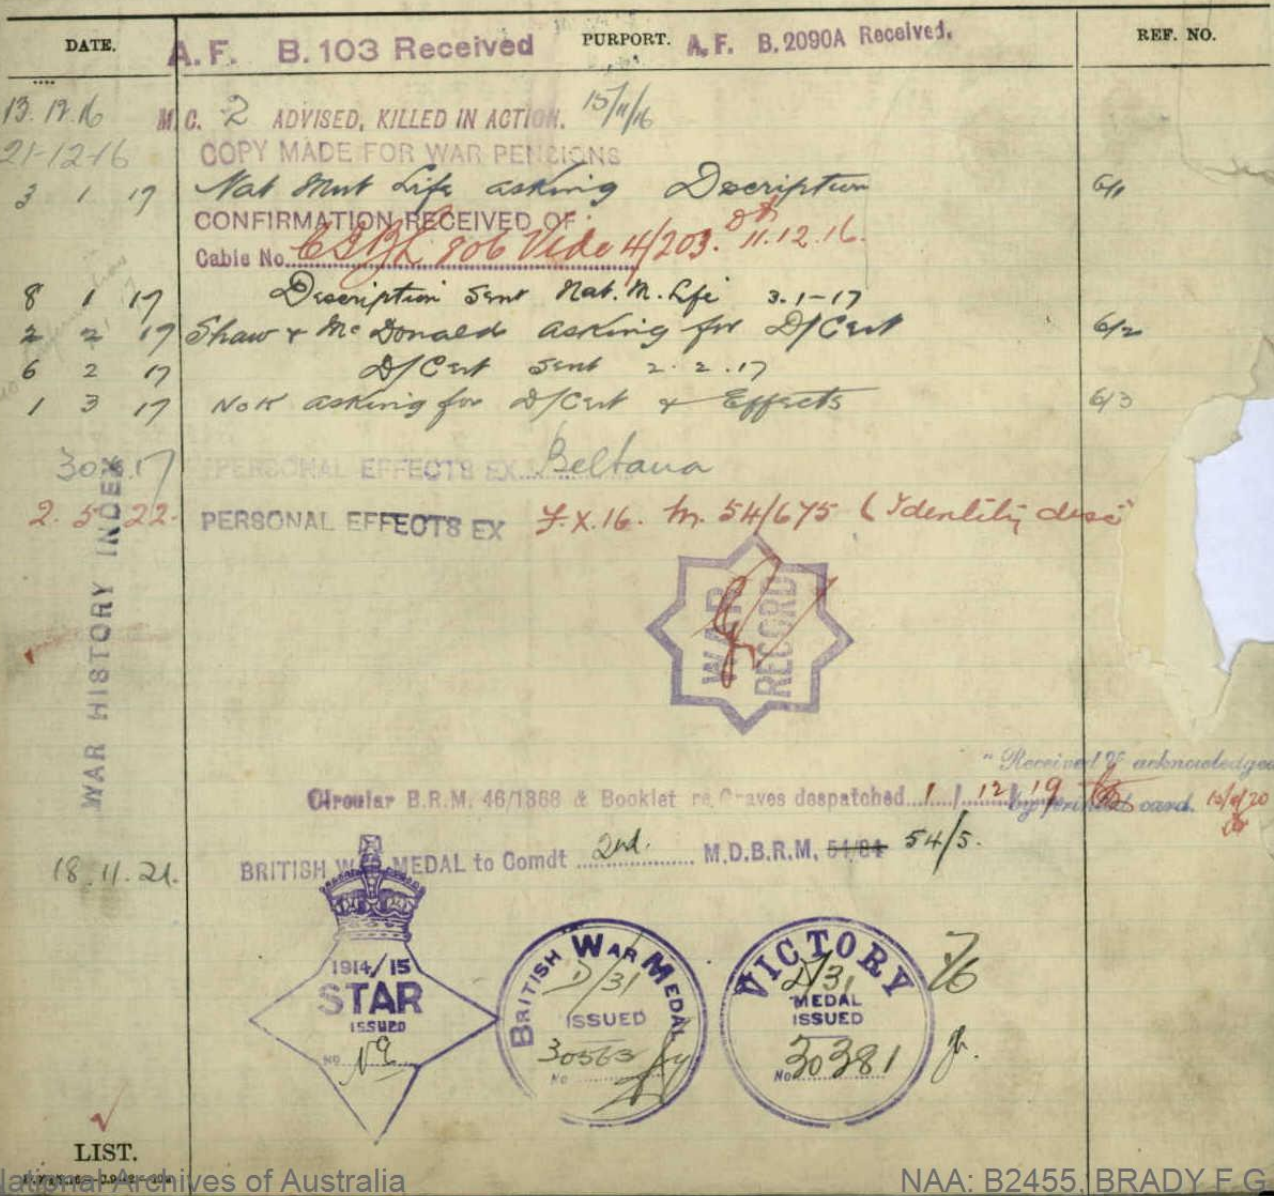 DATE. A.F. B.103 Received PURPORT. A.F. B.2090A Received. REF. NO.
13.12.16 M.C. 2 ADVISED, KILLED IN ACTION. 15/11/16
21-12-16 COPY MADE FOR WAR PENSIONS
3 1 17 Nat Mut Life asking Description 6/1
CONFIRMATION RECEIVED OF
Cable No. 806 Vide 4/203. 11.12.16.
8 1 17 Description sent Nat. M. Life 3.1-17
2 2 17 Shaw & McDonald asking for D/Cert 6/2
6 2 17 D/Cert sent 2.2.17
1 3 17 NoK asking for D/Cert & Effects 6/3
PERSONAL EFFECTS EX Beltana
2.5.22. PERSONAL EFFECTS EX F.X.16. M. 54/675 (Identity disc"
WAR RECORD
WAR HISTORY INDEX
"Received & acknowledged
Circular B.R.M. 46/1868 & Booklet re Graves despatched 1/12/19 by printed card.
18.11.21. BRITISH WAR MEDAL to Comdt 2nd. M.D.B.R.M. 54/84 54/5.
1914/15
STAR
ISSUED
No
BRITISH WAR MEDAL
D/31
ISSUED
30563
No
VICTORY
D/31
MEDAL
ISSUED
No 30381
LIST.
National Archives of Australia NAA: B2455, BRADY F G